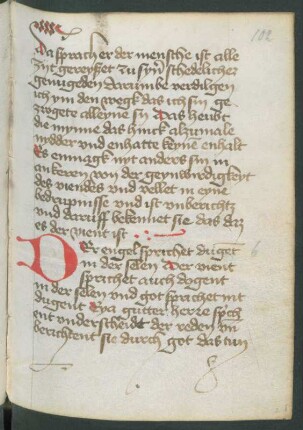 102
Da sprach er der mensche ist alle
zyt gereysset zu syn schedelicher
genugeden darumbe verdilgen
ich ym den wegk das ich sin ge
zogete alleyne sy Das herbt
die mynne das hinck alzumale
nidder und enhatte keyne enhalt
Es enmagk nyt anders sin in
ankeren von der geynwordigkeyt
des viendes und vellet in eyne
bedrupnisse und ist unberichtz
und daruff bekennet sie das daz
es der vient ist
Der engel sprachet duget
in der selen Der vient
sprachet auch dogent
in der selen und got sprachet mit
dugent Eya gutter herze sprch
ent underscheidt der reden un
berichtent sie durch got das tun